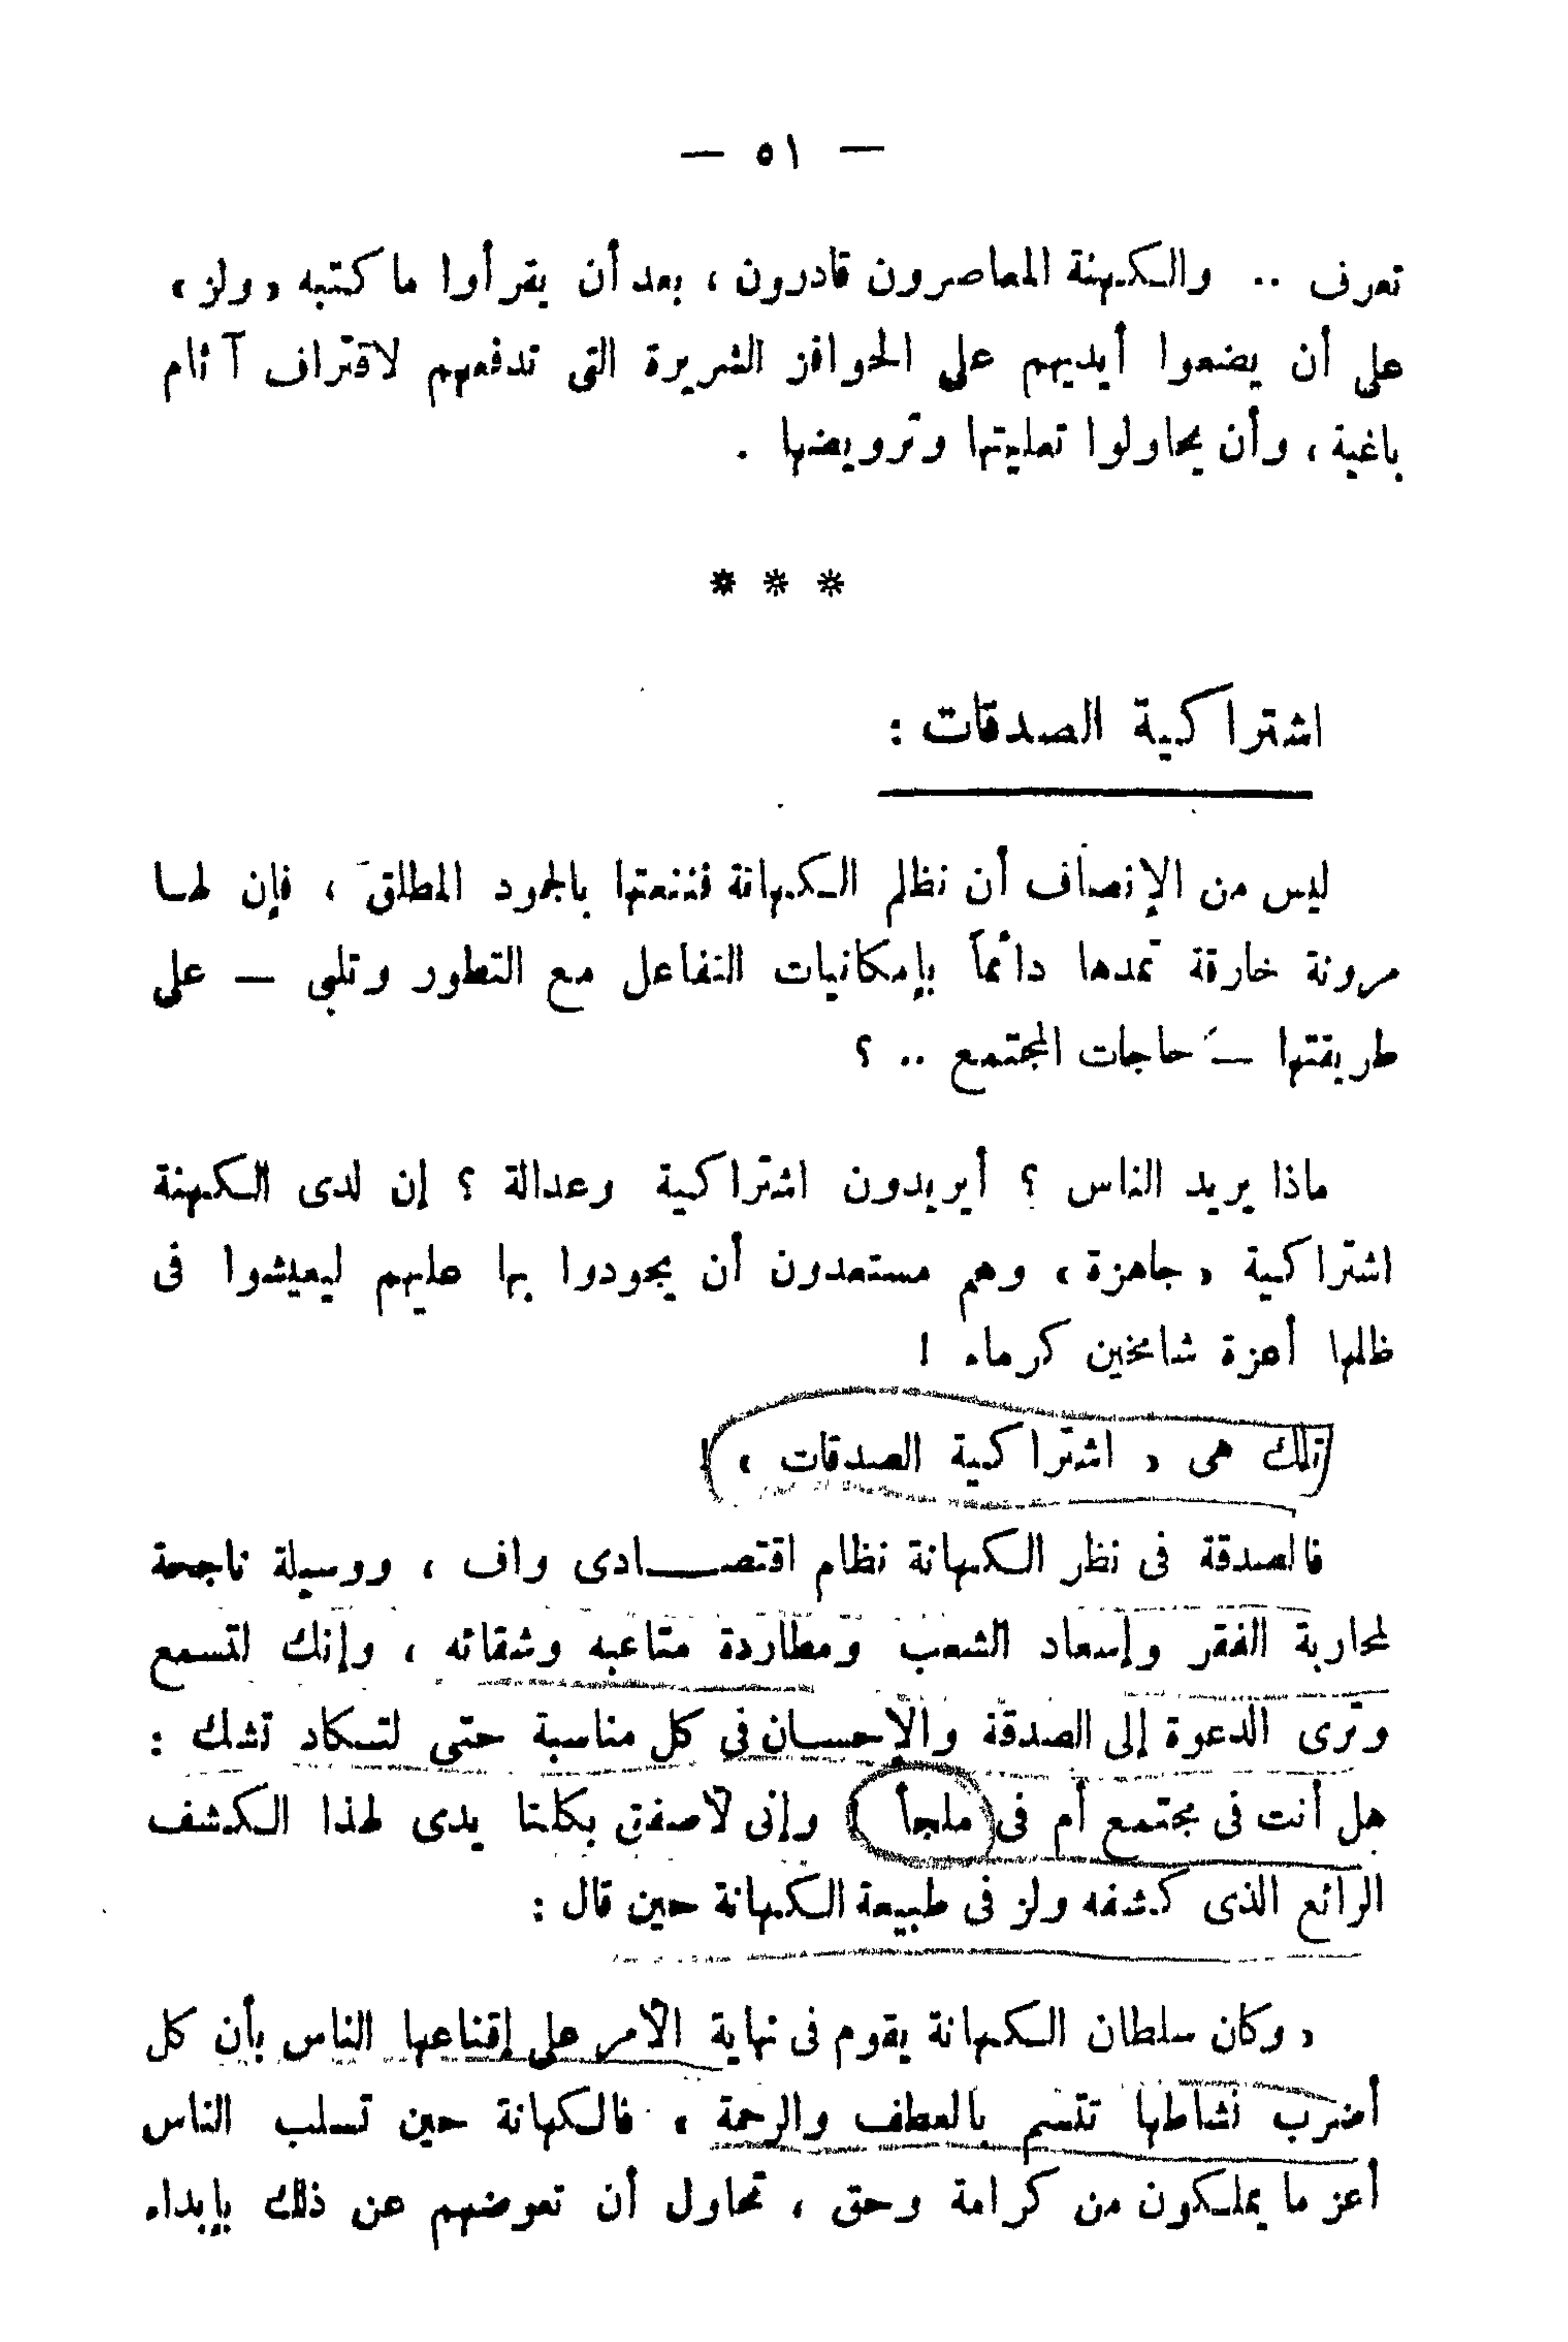 — ٥١ —
تعرف .. والكهنة المعاصرون قادرون ، بعد أن يقرأوا ما كتبه «ولز»
على أن يضعوا أيديهم على الحوافز الشريرة التى تدفعهم لاقتراف آثام
باغية ، وأن يحاولوا تعليتها وترويضها .
* * *
اشتراكية الصدقات :
ليس من الإنصاف أن نظلم الكهانة فننعتها بالجمود المطلق ، فإن لها
مرونة خارقة تمدها دائماً بإمكانيات التفاعل مع التطور وتلبى — على
طريقتها — حاجات المجتمع .. ؟
ماذا يريد الناس ؟ أيريدون اشتراكية وعدالة ؟ إن لدى الكهنة
اشتراكية «جاهزة» وهم مستعدون أن يجودوا بها عليهم ليعيشوا فى
ظلها أعزة شامخين كرماء !
تلك هى « اشتراكية الصدقات » !
فالصدقة فى نظر الكهانة نظام اقتصادى واف ، ووسيلة ناجحة
لمحاربة الفقر وإسعاد الشعب ومطاردة متاعبه وشقائه ، وإنك لتسمع
وترى الدعوة إلى الصدقة والإحسان فى كل مناسبة حتى لتكاد تشك :
هل أنت فى مجتمع أم فى ملجأ وإنى لأصفق بكلتا يدى لهذا الكشف
الرائع الذى كشفه ولز فى طبيعة الكهانة حين قال :
« وكان سلطان الكهانة يقوم فى نهاية الأمر على إقناعها الناس بأن كل
أضرب نشاطها تتسم بالعطف والرحمة » فالكهانة حين تسلب الناس
أعز ما يملكون من كرامة وحق ، تحاول أن تعوضهم عن ذلك بإبداء